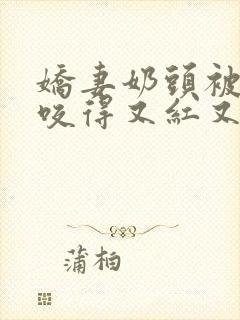 嬌妻奶頭被
咬得又紅又
蒲柏